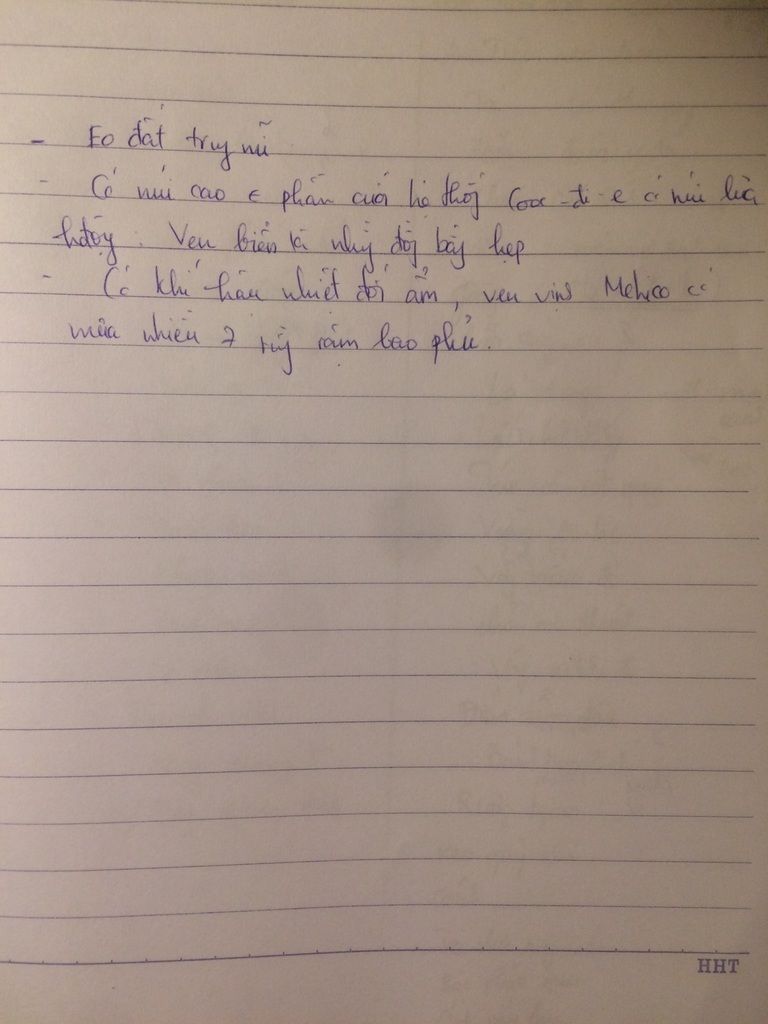 - Eo đất trug mĩ
- Có núi cao ∈ phần cuối hệ thốg Cooc-đi-e có núi lửa
hđộg. Ven biển là nhữg đồg bằg hẹp
- Có khí hậu nhiệt đới ẩm, ven vịnh Mehico có
mưa nhiều → rừg rậm bao phủ.
HHT